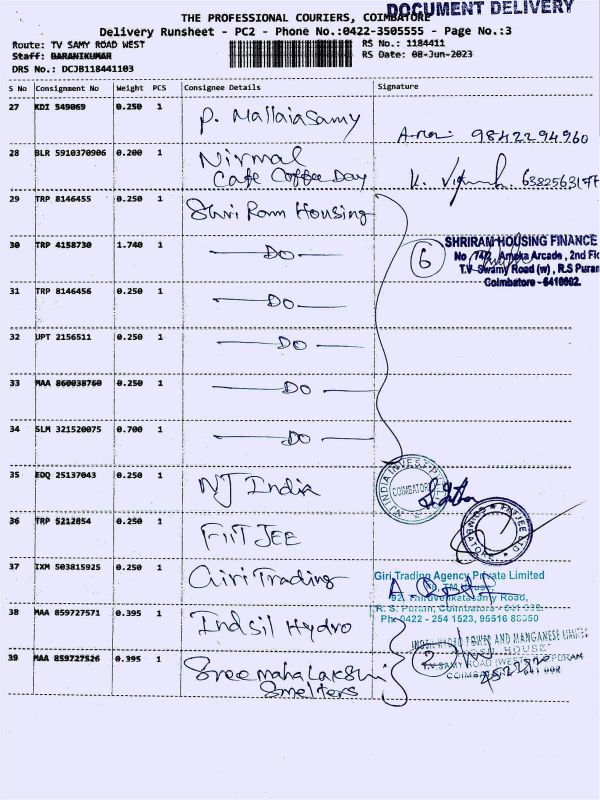 DOCUMENT DELIVERY
THE PROFESSIONAL COURIERS, COIMBATORE
Delivery Runsheet - PC2 - Phone No.:0422-3505555 - Page No.:3
Route: TV SAMY ROAD WEST
Staff: BARANIKUMAR
DRS No.: DCJB118441103
RS No.: 1184411
RS Date: 08-Jun-2023
S No Consignment No Weight PCS Consignee Details Signature
27 KDI 549069 0.250 1 P. Mallaiasamy 9842294960
28 BLR 5910370906 0.200 1 Nirmal
Cafe Coffee Day K.
29 TRP 8146455 0.250 1 Shri Ram Housing
30 TRP 4158730 1.740 1 DO 6
SHRIRAM HOUSING FINANCE
No 74/2, Ameka Arcade, 2nd Flo
T.V Swamy Road (w), R.S Puram
Coimbatore - 641002.
31 TRP 8146456 0.250 1 DO
32 UPT 2156511 0.250 1 DO
33 MAA 860038760 0.250 1 DO
34 SLM 321520075 0.700 1 DO
35 EDQ 25137043 0.250 1 NJ India
COIMBATORE
36 TRP 5212854 0.250 1 FIITJEE
FIITJEE LTD
COIMBATORE
37 IXM 503815925 0.250 1 Giri Trading
Giri Trading Agency Private Limited
Thiruvenkatasamy Road,
R. S. Puram, Coimbatore -
Ph: 0422 - 254 1523, 95516 80350
38 MAA 859727571 0.395 1 Indsil Hydro
INDSIL HYDRO POWER AND MANGANESE LIMITED
INDSIL HOUSE
T.V. SAMY ROAD (WEST)
COIMBATORE - 641 002
39 MAA 859727526 0.395 1 Sree maha Lakshmi
Smelters 2